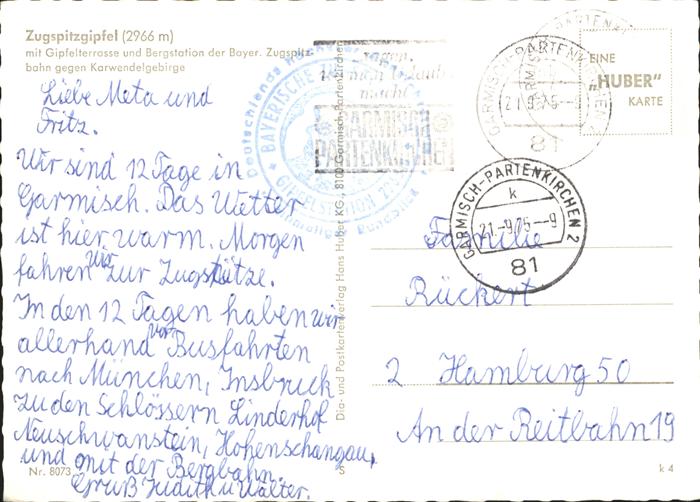 Zugspitzgipfel (2966 m)
mit Gipfelterrasse und Bergstation der Bayer. Zugspitz-
bahn gegen Karwendelgebirge
Liebe Meta und
Fritz.
Wir sind 12 Tage in
Garmisch. Das Wetter
ist hier warm. Morgen
fahren wir zur Zugspitze.
In den 12 Tagen haben wir
allerhand vor Busfahrten
nach München, Insbruck
zu den Schlössern Linderhof
Neuschwanstein, Hohenschangau,
und mit der Bergbahn.
Gruß Judith u Walter.
Nr. 8073
Dia- und Postkartenverlag Hans Huber KG., 8100 Garmisch-Partenkirchen
S
GARMISCH
PARTENKIRCHEN
BAYERISCHE
GARMISCH-PARTENKIRCHEN 2
k
21.-9.75-9
81
EINE
„HUBER"
KARTE
GARMISCH-PARTENKIRCHEN 2
81
Familie
Rückert
2 Hamburg 50
An der Reitbahn 19
k 4